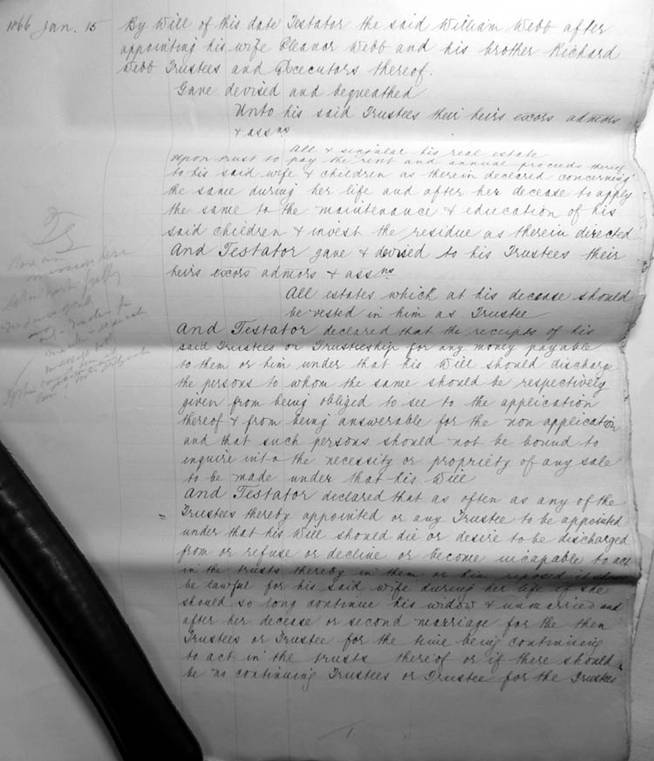 1866 Jan. 15 By Will of this date Testator the said William Webb after
appointing his wife Eleanor Webb and his brother Richard
Webb Trustees and Executors thereof.
Gave devised and bequeathed
Unto his said Trustees their heirs excors admors
& assns
All & singular his real estate
Upon trust to pay the rent and annual proceeds
to his said wife & children as therein declared concerning
the same during her life and after her decease to apply
the same to the maintenance & education of his
said children & invest the residue as therein directed
And Testator gave & devised to his Trustees their
heirs excors admors & assns
All estates which at his decease should
be vested in him as Trustee
And Testator declared that the receipts of his
said Trustees or Trusteeship for any money payable
to them or him under that his Will should discharge
the persons to whom the same should be respectively
given from being obliged to see to the application
thereof & from being answerable for the non application
and that such persons should not be bound to
inquire into the necessity or propriety of any sale
to be made under that his Will
And Testator declared that as often as any of the
Trustees thereby appointed or any Trustee to be appointed
under that his Will should die or desire to be discharged
from or refuse or decline or become incapable to act
in the trusts thereby in them or him reposed it
be lawful for his said wife during her life if she
should so long continue his widow & unmarried and
after her decease or second marriage for the then
Trustees or Trustee for the time being continuing
to act in the trusts thereof or if there should
be no continuing Trustees or Trustee for the Trustees